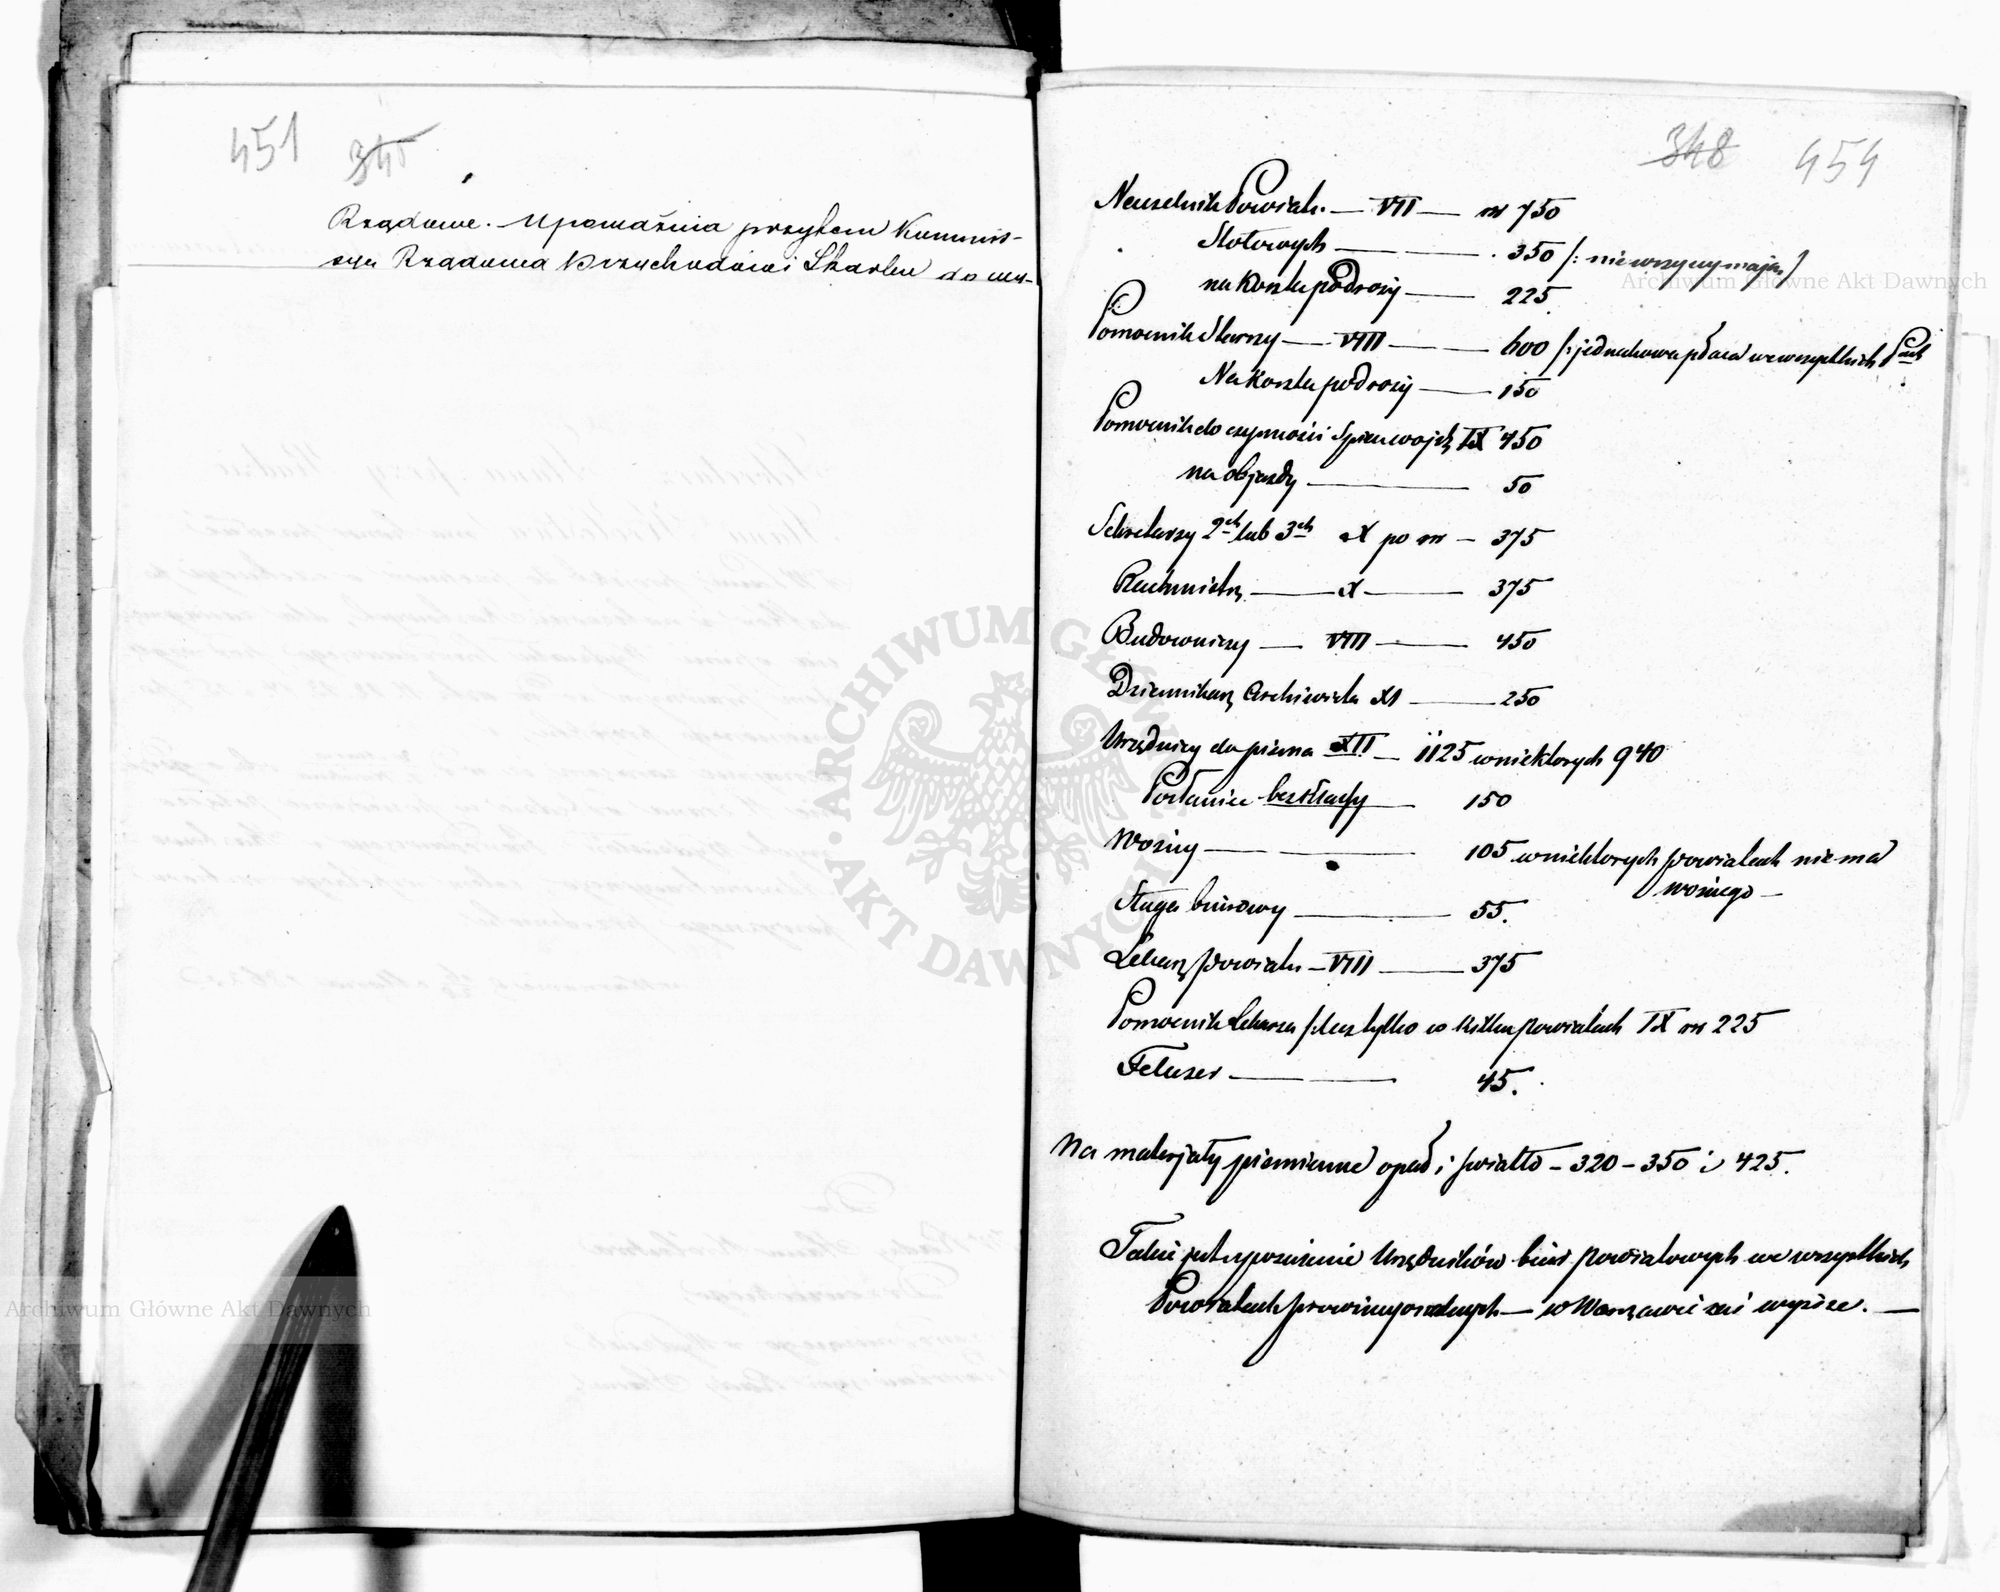 451 345
Rządowe. Upoważnia przytem Kommis-
syą Rządową Przychodów i Skarbu do wy-
348 454
Naczelnik Powiatu — VII — rs 750
Stołowych — 350 /: nie wszyscy mają :/
na Koszta podróży — 225
Pomocnik Starszy — VIII — 600 /: jednakowa płaca we wszystkich Pach
Na Koszta podróży — 150
Pomocnik do czynności Spisu wojsk IX 450
na objazdy — 50
Sekretarzy 2ch lub 3ch X po rs — 375
Rachmistrz — X — 375
Budowniczy — VIII — 450
Dziennikarz Archiwista XI — 250
Urzędnicy do pisma XII — 1125 w niektórych 940
Posłaniec bezklassy — 150
Woźny — 105 w niektórych powiatach niema
woźnego —
Sługa biurowy — 55.
Lekarz powiatu — VIII — 375
Pomocnik Lekarza /: lecz tylko w kilku powiatach IX rs 225
Felczer — 45.
Na materjały piśmienne opał i światło — 320 — 350 i 425.
Takie jest uposażenie Urzędników biur powiatowych we wszystkich
Powiatach prowincyonalnych — w Warszawie zaś wyższe. —
ARCHIWUM GŁÓWNE AKT DAWNYCH
Archiwum Główne Akt Dawnych
Archiwum Główne Akt Dawnych